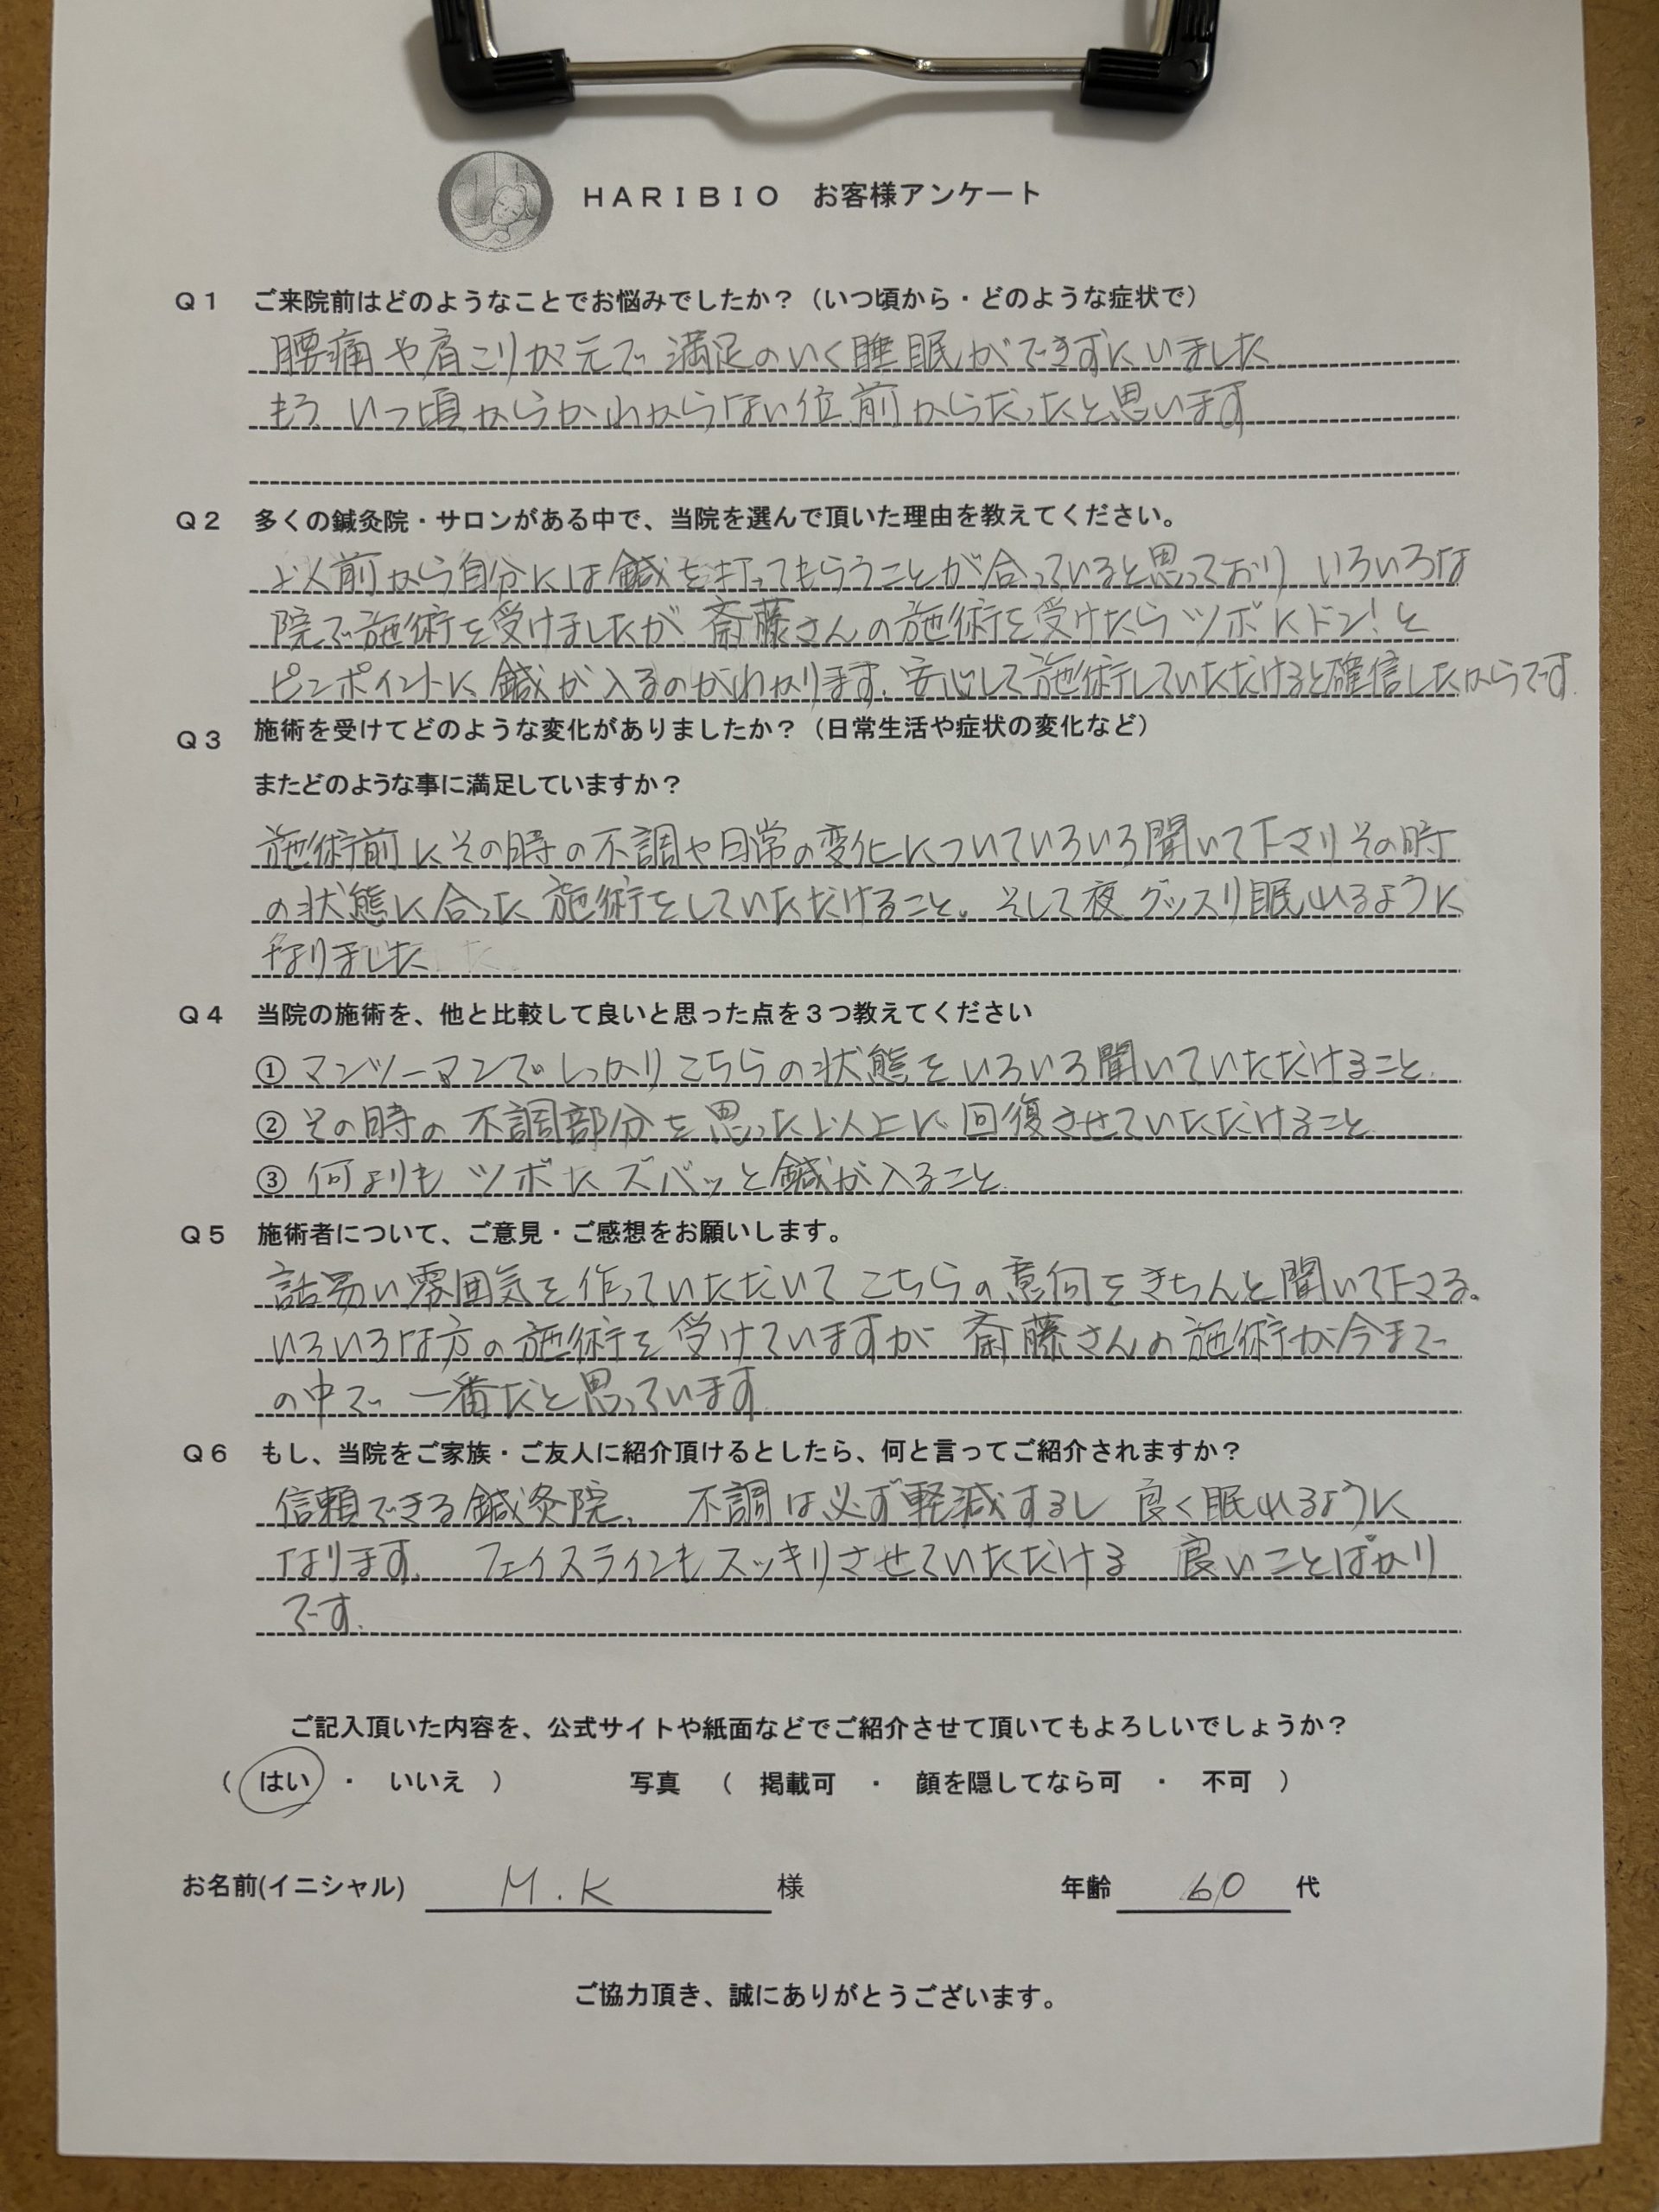 HARIBIO お客様アンケート
Q1 ご来院前はどのようなことでお悩みでしたか？（いつ頃から・どのような症状で）
腰痛や肩こりが元で満足のいく睡眠ができずにいました
もういつ頃からかわからない位前からだったと思います
Q2 多くの鍼灸院・サロンがある中で、当院を選んで頂いた理由を教えてください。
以前から自分には鍼を打ってもらうことが合っていると思っており いろいろな
院で施術を受けましたが 斎藤さんの施術を受けたらツボにドン！と
ピンポイントに鍼が入るのがわかります。安心して施術していただけると確信したからです。
Q3 施術を受けてどのような変化がありましたか？（日常生活や症状の変化など）
またどのような事に満足していますか？
施術前にその時の不調や日常の変化についていろいろ聞いて下さりその時
の状態に合った施術をしていただけること。そして夜グッスリ眠れるように
なりました
Q4 当院の施術を、他と比較して良いと思った点を３つ教えてください
① マンツーマンでしっかりこちらの状態をいろいろ聞いていただけること。
② その時の不調部分を思った以上に回復させていただけること
③ 何よりもツボにズバッと鍼が入ること。
Q5 施術者について、ご意見・ご感想をお願いします。
話易い雰囲気を作っていただいてこちらの意向をきちんと聞いて下さる。
いろいろな方の施術を受けていますが 斎藤さんの施術が今まで
の中で一番だと思っています。
Q6 もし、当院をご家族・ご友人に紹介頂けるとしたら、何と言ってご紹介されますか？
信頼できる鍼灸院。不調は必ず軽減するし 良く眠れるように
なります。フェイスラインもスッキリさせていただける 良いことばかり
です。
ご記入頂いた内容を、公式サイトや紙面などでご紹介させて頂いてもよろしいでしょうか？
（ はい ・ いいえ ） 写真 （ 掲載可 ・ 顔を隠してなら可 ・ 不可 ）
お名前(イニシャル) M.K 様 年齢 60 代
ご協力頂き、誠にありがとうございます。